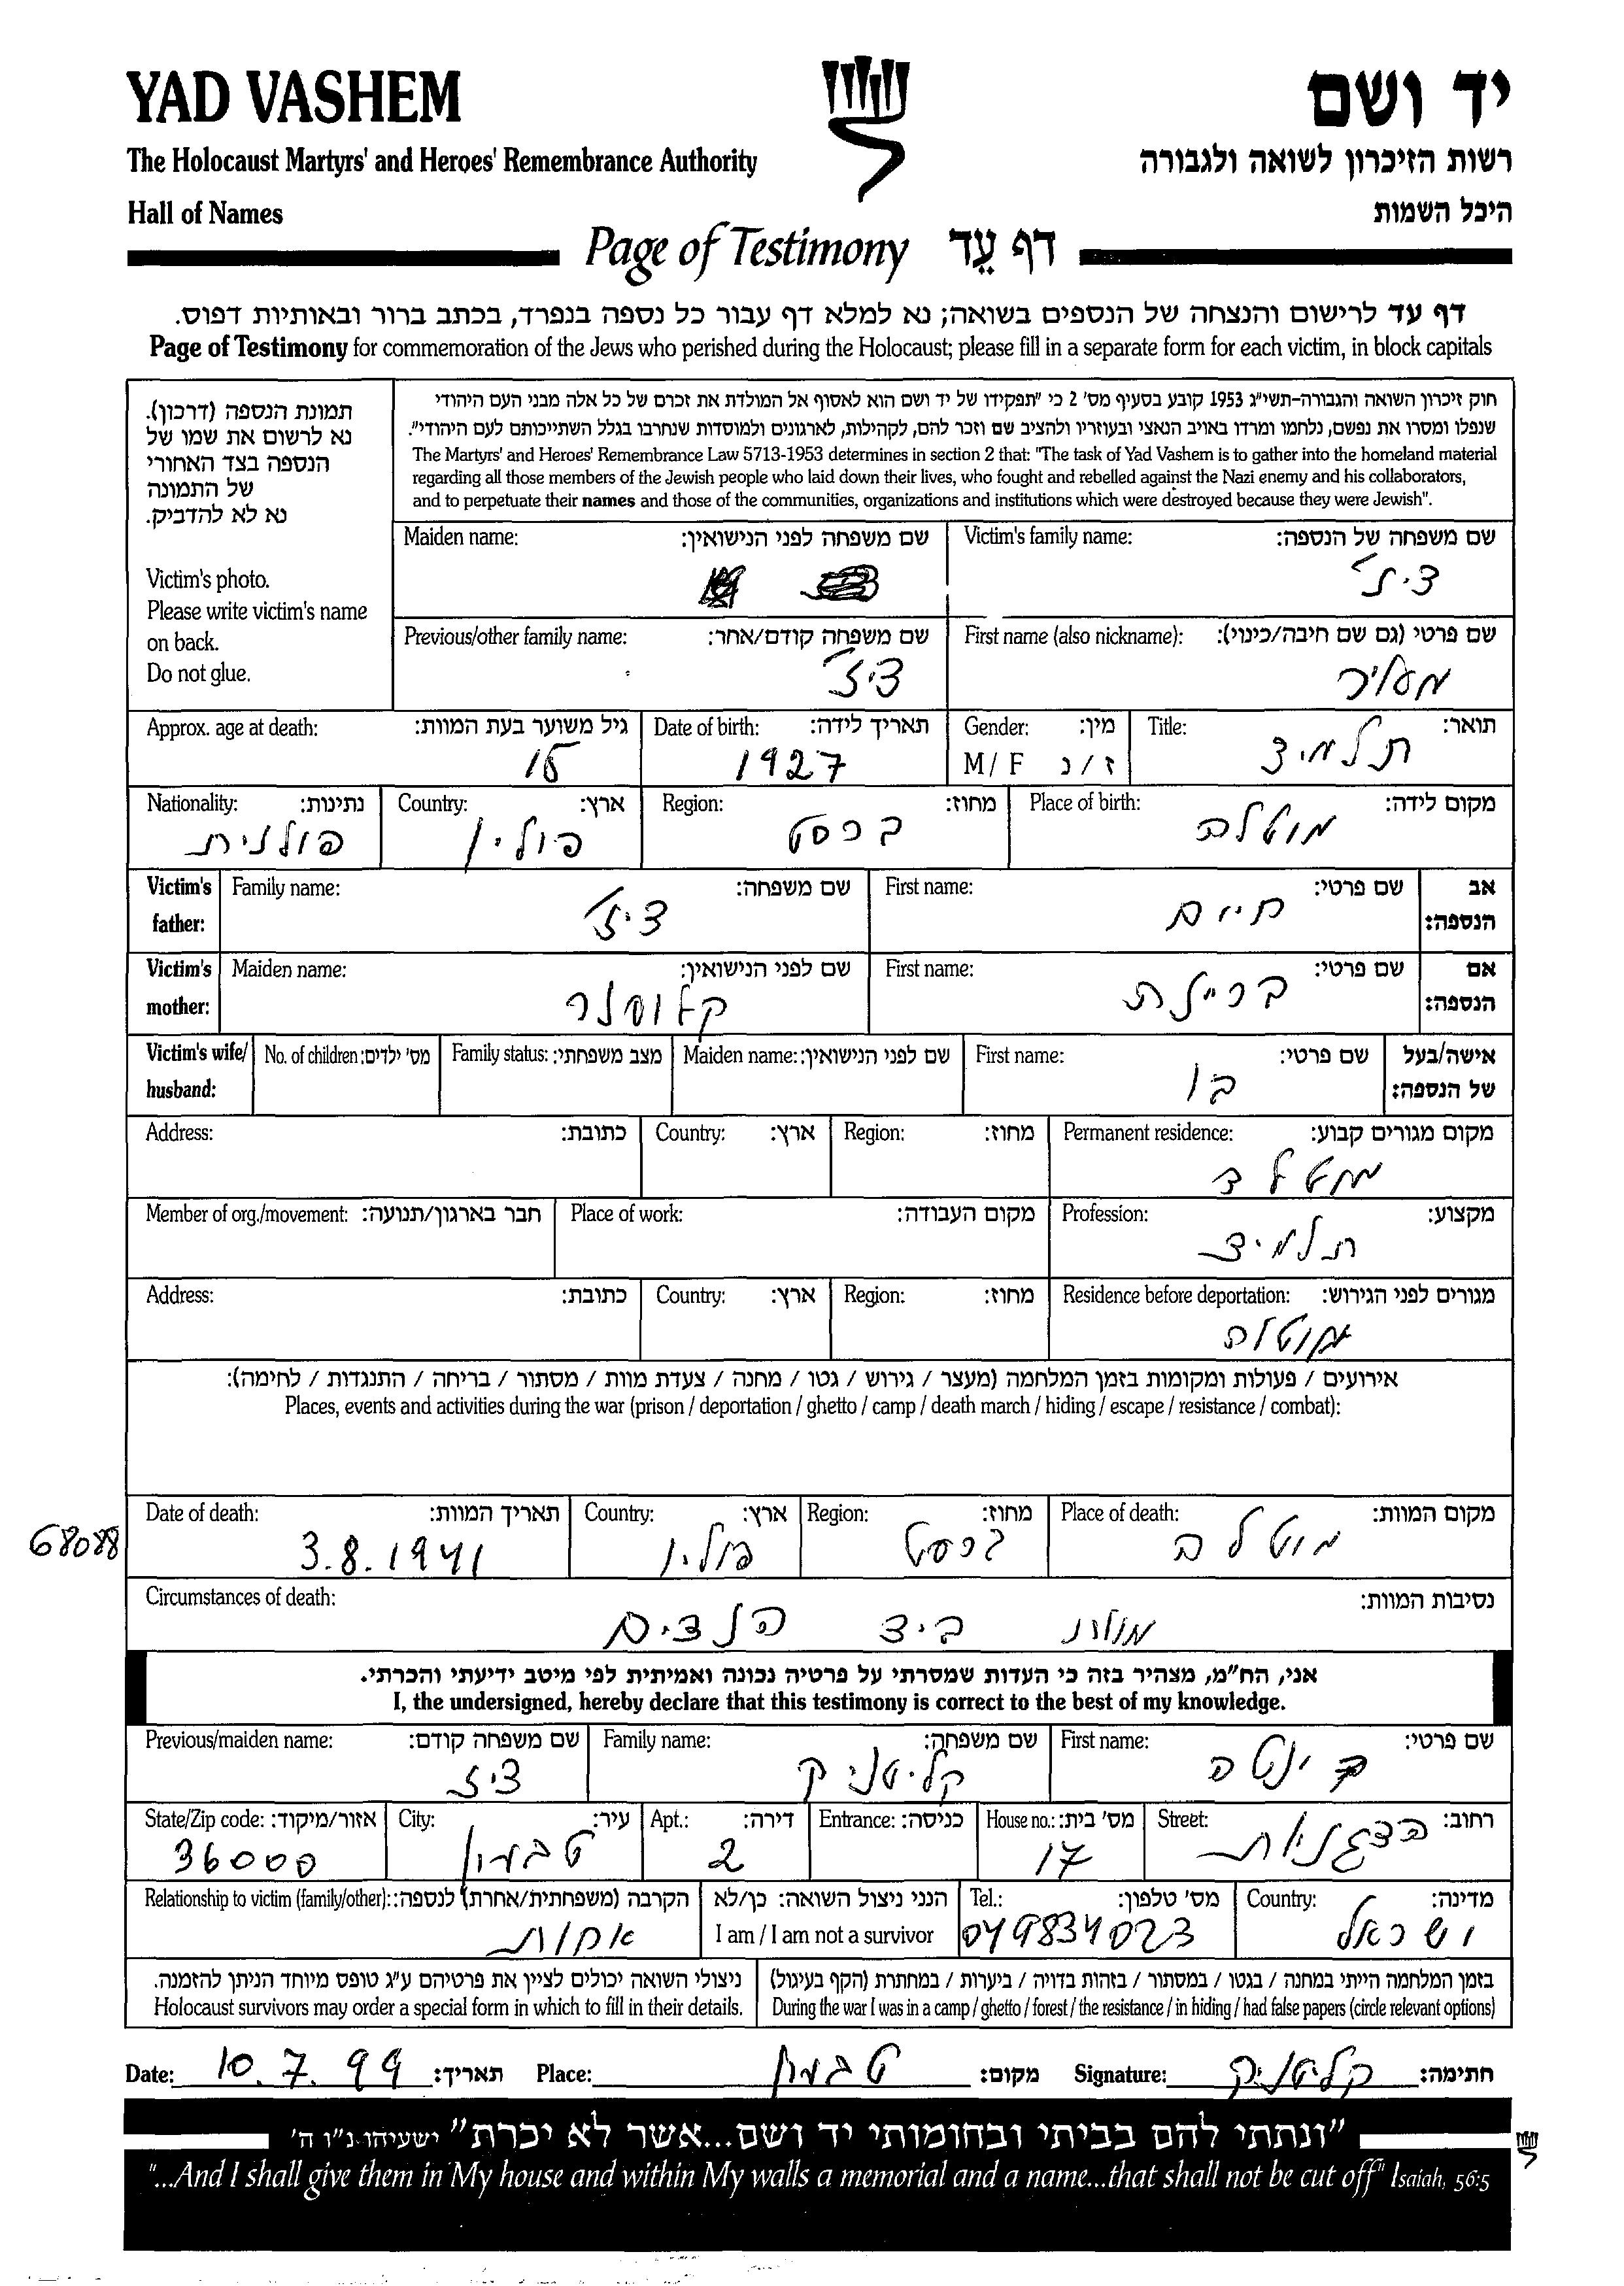 YAD VASHEM
יד ושם
The Holocaust Martyrs' and Heroes' Remembrance Authority
רשות הזיכרון לשואה ולגבורה
Hall of Names
היכל השמות
Page of Testimony דף עֵד
דף עד לרישום והנצחה של הנספים בשואה; נא למלא דף עבור כל נספה בנפרד, בכתב ברור ובאותיות דפוס.
Page of Testimony for commemoration of the Jews who perished during the Holocaust; please fill in a separate form for each victim, in block capitals
תמונת הנספה (דרכון).
נא לרשום את שמו של
הנספה בצד האחורי
של התמונה
נא לא להדביק.
Victim's photo.
Please write victim's name
on back.
Do not glue.
חוק זיכרון השואה והגבורה-תשי"ג 1953 קובע בסעיף מס' 2 כי "תפקידו של יד ושם הוא לאסוף אל המולדת את זכרם של כל אלה מבני העם היהודי
שנפלו ומסרו את נפשם, נלחמו ומרדו באויב הנאצי ובעוזריו ולהציב שם וזכר להם, לקהילות, לארגונים ולמוסדות שנחרבו בגלל השתייכותם לעם היהודי".
The Martyrs' and Heroes' Remembrance Law 5713-1953 determines in section 2 that: "The task of Yad Vashem is to gather into the homeland material
regarding all those members of the Jewish people who laid down their lives, who fought and rebelled against the Nazi enemy and his collaborators,
and to perpetuate their names and those of the communities, organizations and institutions which were destroyed because they were Jewish".
Victim's family name: שם משפחה של הנספה:
Maiden name: שם משפחה לפני הנישואין:
First name (also nickname): שם פרטי (גם שם חיבה/כינוי):
Previous/other family name: שם משפחה קודם/אחר:
דיז'
Title: תואר:
תלמיד
Gender: מין:
M / F ז / נ
Date of birth: תאריך לידה:
1927
Approx. age at death: גיל משוער בעת המוות:
15
Place of birth: מקום לידה:
מוטלה
Region: מחוז:
ברסט
Country: ארץ:
פולין
Nationality: נתינות:
פולנית
Victim's father: אב הנספה:
First name: שם פרטי:
חיים
Family name: שם משפחה:
דיז'
Victim's mother: אם הנספה:
First name: שם פרטי:
Maiden name: שם לפני הנישואין:
Victim's wife/husband: אישה/בעל של הנספה:
First name: שם פרטי:
בן
Maiden name: שם לפני הנישואין:
Family status: מצב משפחתי:
No. of children: מס' ילדים:
Permanent residence: מקום מגורים קבוע:
Region: מחוז:
Country: ארץ:
Address: כתובת:
Profession: מקצוע:
תלמיד
Place of work: מקום העבודה:
Member of org./movement: חבר בארגון/תנועה:
Residence before deportation: מגורים לפני הגירוש:
מוטלה
Region: מחוז:
Country: ארץ:
Address: כתובת:
אירועים / פעולות ומקומות בזמן המלחמה (מעצר / גירוש / גטו / מחנה / צעדת מוות / מסתור / בריחה / התנגדות / לחימה):
Places, events and activities during the war (prison / deportation / ghetto / camp / death march / hiding / escape / resistance / combat):
Place of death: מקום המוות:
מוטלה
Region: מחוז:
ברסט
Country: ארץ:
פולין
Date of death: תאריך המוות:
3.8.1941
68088
Circumstances of death: נסיבות המוות:
ביד
אני, הח"מ, מצהיר בזה כי העדות שמסרתי על פרטיה נכונה ואמיתית לפי מיטב ידיעתי והכרתי.
I, the undersigned, hereby declare that this testimony is correct to the best of my knowledge.
First name: שם פרטי:
Family name: שם משפחה:
קליטניק
Previous/maiden name: שם משפחה קודם:
דיז
Street: רחוב:
House no.: מס' בית:
17
Entrance: כניסה:
Apt.: דירה:
2
City: עיר:
טבעון
State/Zip code: אזור/מיקוד:
36000
Country: מדינה:
ישראל
Tel.: מס' טלפון:
049834023
הנני ניצול השואה: כן/לא
I am / I am not a survivor
Relationship to victim (family/other): הקרבה (משפחתית/אחרת) לנספה:
אחות
בזמן המלחמה הייתי במחנה / בגטו / במסתור / בזהות בדויה / ביערות / במחתרת (הקף בעיגול)
During the war I was in a camp / ghetto / forest / the resistance / in hiding / had false papers (circle relevant options)
ניצולי השואה יכולים לציין את פרטיהם ע"ג טופס מיוחד הניתן להזמנה.
Holocaust survivors may order a special form in which to fill in their details.
Date: 10.7.99 תאריך: Place: טבעון מקום: Signature: קליטניק חתימה:
"ונתתי להם בביתי ובחומותי יד ושם...אשר לא יכרת" ישעיהו נ"ו ה'
"...And I shall give them in My house and within My walls a memorial and a name...that shall not be cut off" Isaiah, 56:5